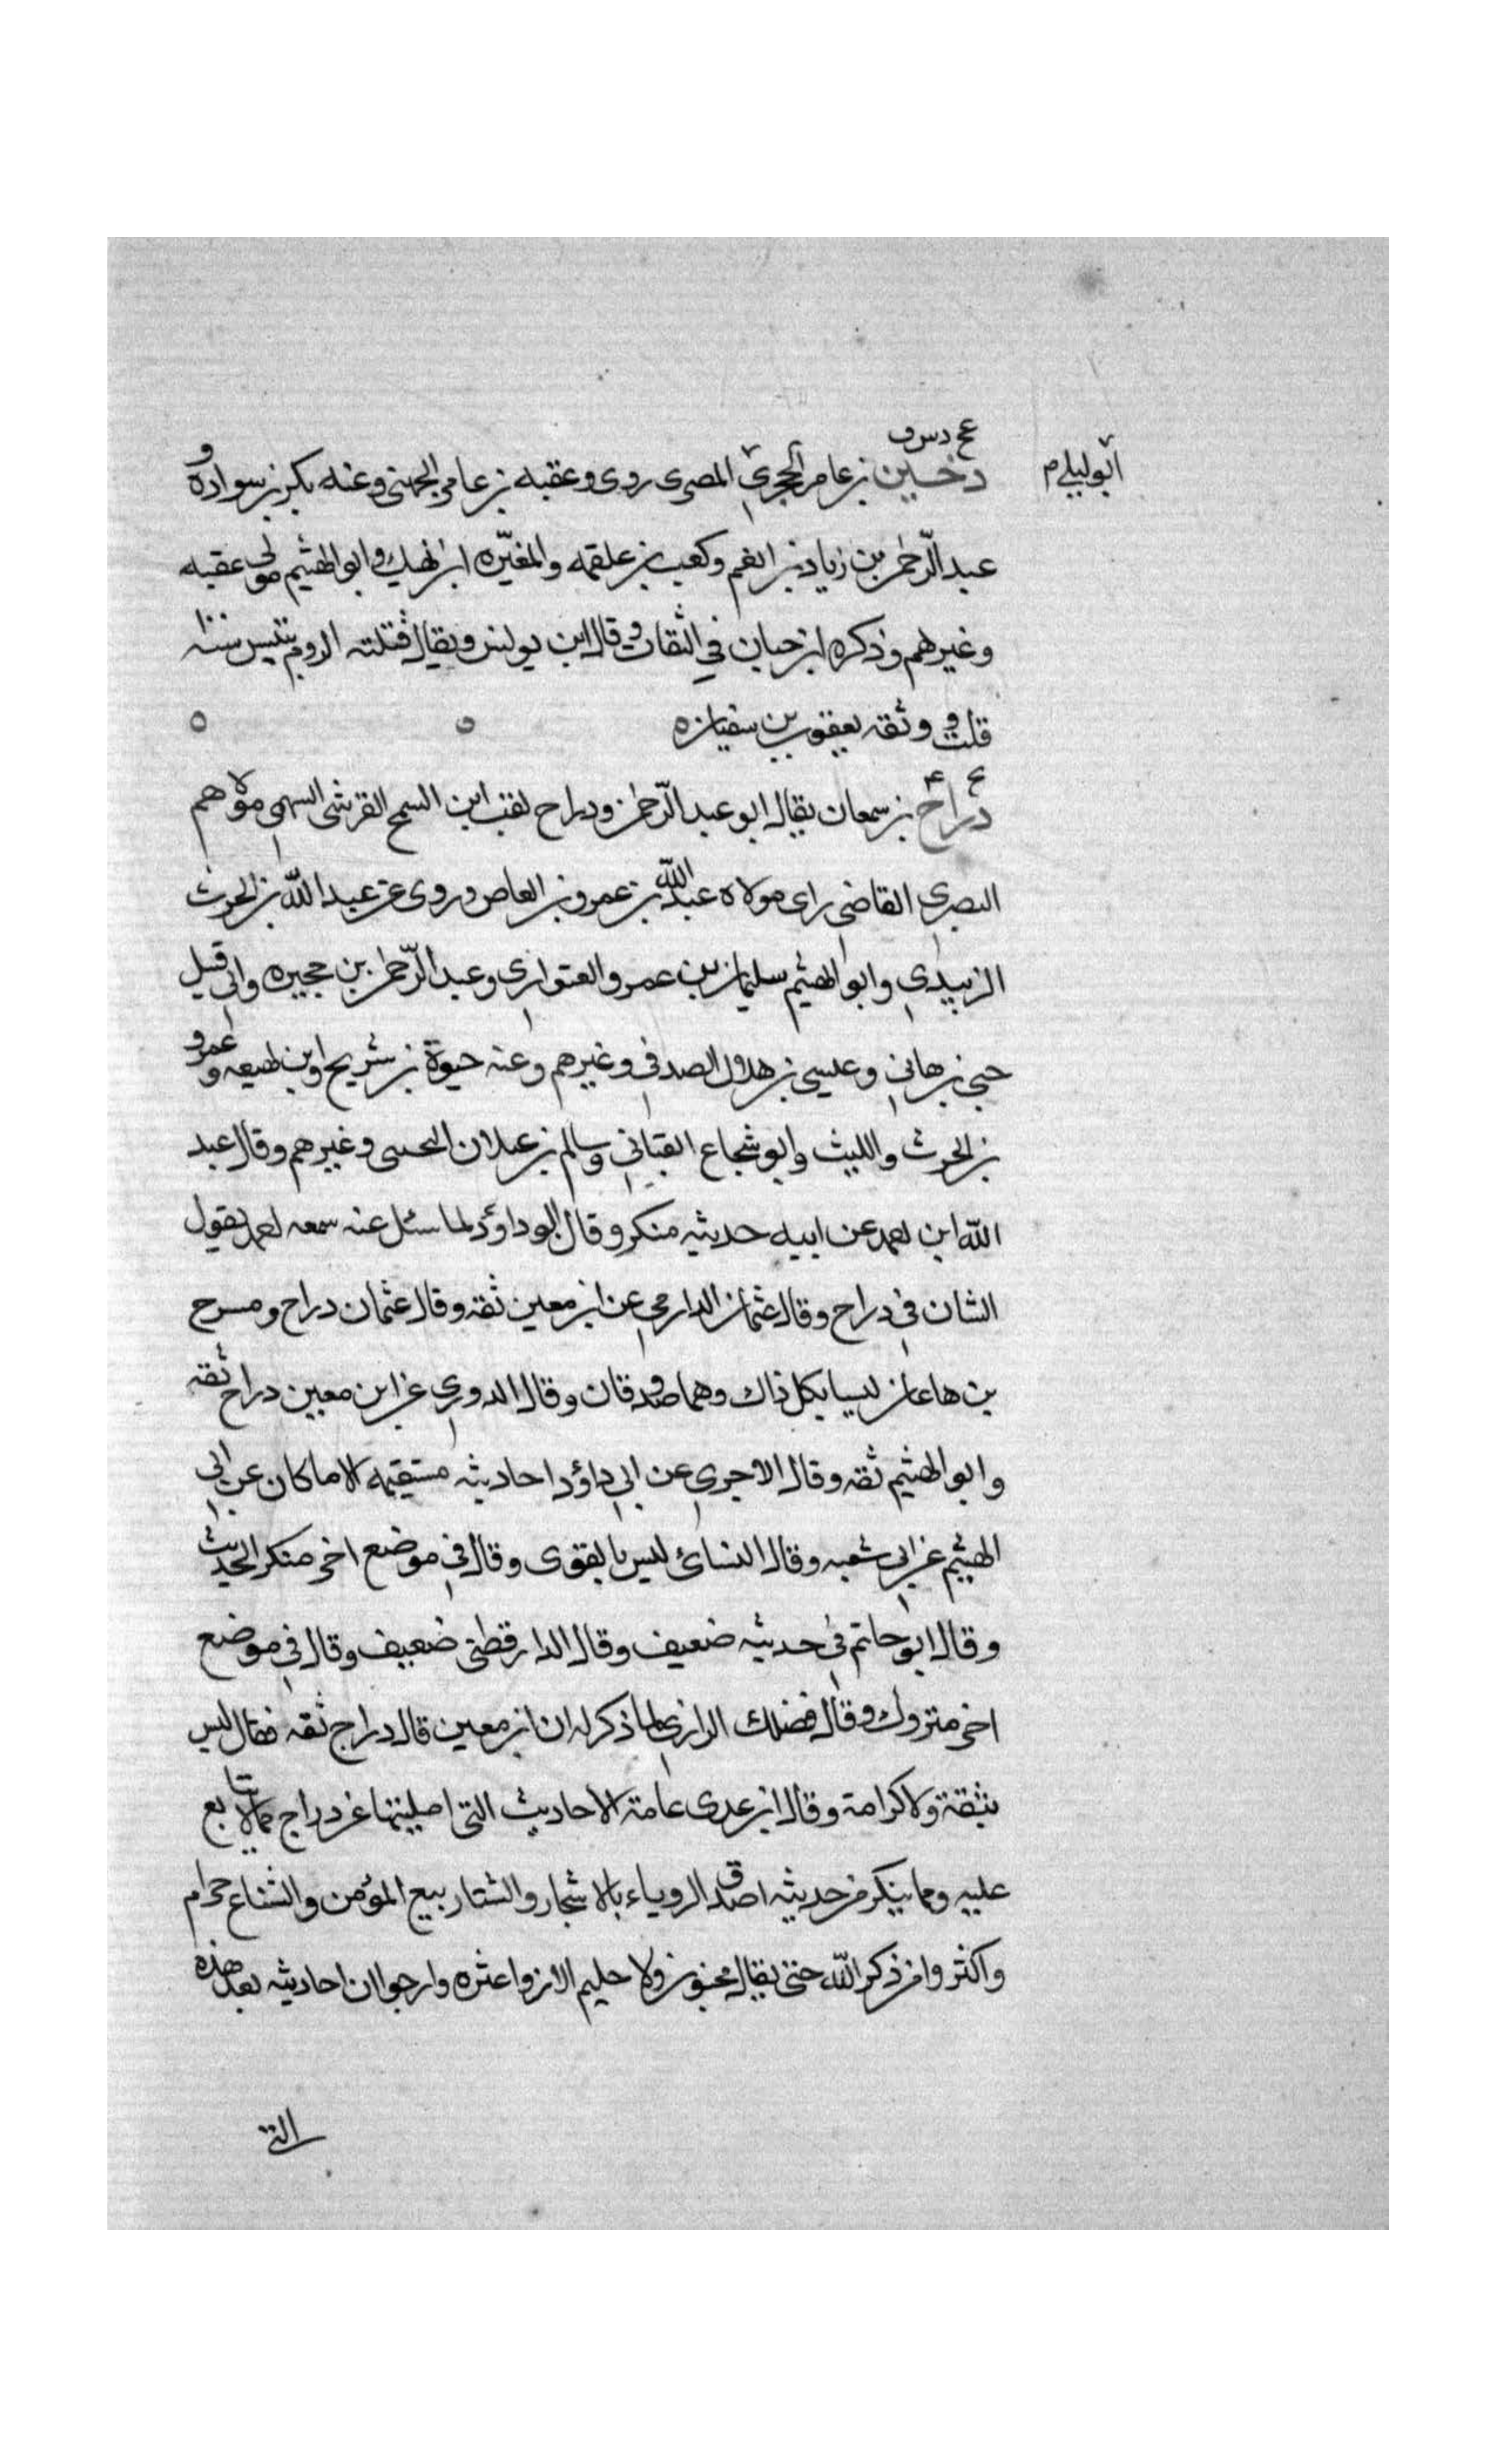 عخ د س ق
ابو ليلى م
دخين بن عامر الحجرى المصرى روى وعقبه بن عامر الجهنى وعنه بكر بن سواده و
عبد الرحمن بن زياد بن انعم وكعب بن علقمه والمغيره ابن نهيك وابو الهيثم مولى عقبه
وغيرهم وذكره ابن حبان في الثقات وقال ابن يونس ويقال قتلته الروم بتنيس سنة ١٠٠
قلت ووثقه يعقوب بن سفيان ه
دراج بن سمعان يقال ابو عبد الرحمن ودراح لقب ابن السمح القرشى السهمى مولاهم
البصرى القاضى راى مولاه عبد الله بن عمرو بن العاص وروى عن عبد الله بن الحرث
الزبيدي وابو الهيثم سليمان بن عمرو العتوارى وعبد الرحمن بن حجيره وابى قبيل
حيى بن هانى وعيسى بن هلال الصدفى وغيرهم وعنه حيوة بن شريح وابن لهيعه وعمرو
بن الحرث والليث وابو شجاع القتبانى وسالم بن غيلان وغيرهم وقال عبد
الله ابن احمد عن ابيه حديثه منكر وقال ابو داؤد لما سئل عنه سمعه احمد يقول
الشان في دراح وقال عثمان الدارمي عن ابن معين ثقه وقال عثمان دراح ومسرح
بن هاعان ليسا بكل ذاك وهما صدوقان وقال الدوري عن ابن معين دراح ثقه
وابو الهيثم ثقه وقال الاجرى عن ابي داؤد احاديثه مستقيمه الا ما كان عن ابي
الهيثم عن ابي شعبه وقال النسائ ليس بالقوى وقال في موضع اخر منكر الحديث
وقال ابو حاتم في حديثه ضعيف وقال الدارقطنى ضعيف وقال في موضع
اخر متروك وقال فضلك الرازى لما ذكر له ان ابن معين قال دراج ثقه فقال ليس
بثقة ولا كرامة وقال ابن عدى عامة الاحاديث التى امليتها عن دراج مما لا يتابع
عليه ومما ينكر من حديثه اصدق الروياء بالاشجار والشتا ربيع المؤمن والشناع حرام
واكثروا من ذكر الله حتى يقال مجنون ولا حليم الا ذوا عثره وارجوا ان احاديثه بعد هذه
التى